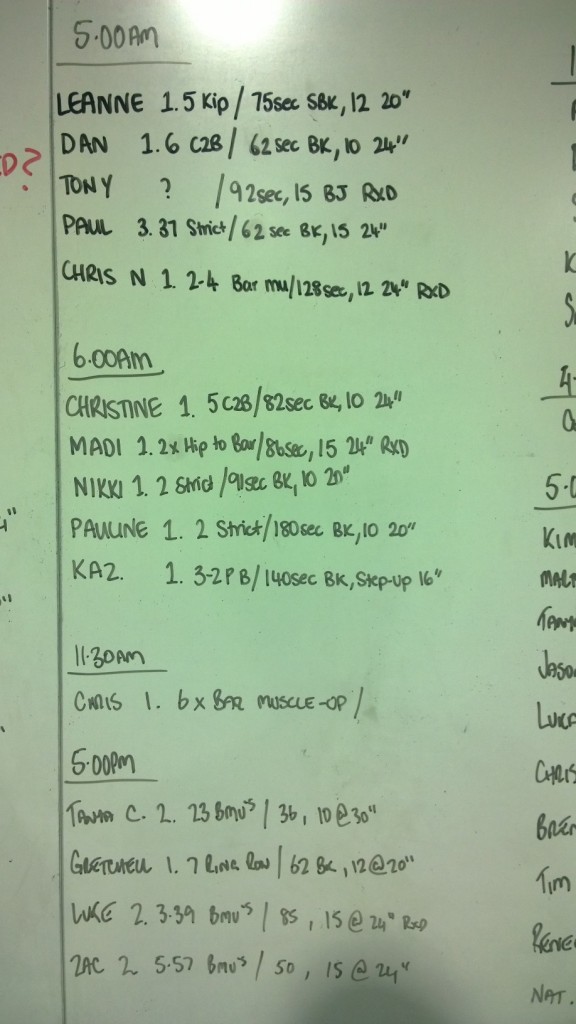 5.00AM
LEANNE 1. 5 Kip / 75sec SBK, 12 20"
DAN 1. 6 C2B / 62 sec BK, 10 24"
TONY ? / 92sec, 15 BJ RXD
PAUL 3. 37 Strict / 62 sec BK, 15 24"
CHRIS N 1. 2-4 Bar mu / 128 sec, 12 24" RXD
6.00AM
CHRISTINE 1. 5 C2B / 82sec BK, 10 24"
MADI 1. 2x Hip to Bar / 86sec, 15 24" RXD
NIKKI 1. 2 Strict / 91sec BK, 10 20"
PAULINE 1. 2 Strict / 180sec BK, 10 20"
KAZ. 1. 3-2 PB / 140sec BK, Step-up 16"
11.30AM
CHRIS 1. 6 x BAR MUSCLE-UP /
5.00PM
TANYA C. 2. 23 Bmu's / 36, 10 @ 30"
GRETCHELL 1. 7 RING ROW / 62 BK, 12 @ 20"
LUKE 2. 3.39 Bmu's / 85, 15 @ 24" RXD
ZAC 2 5.57 Bmu's / 50, 15 @ 24"
D?
5.0
KIM
JASO
CHRIS
BREN
TIM
RENE
NAT.